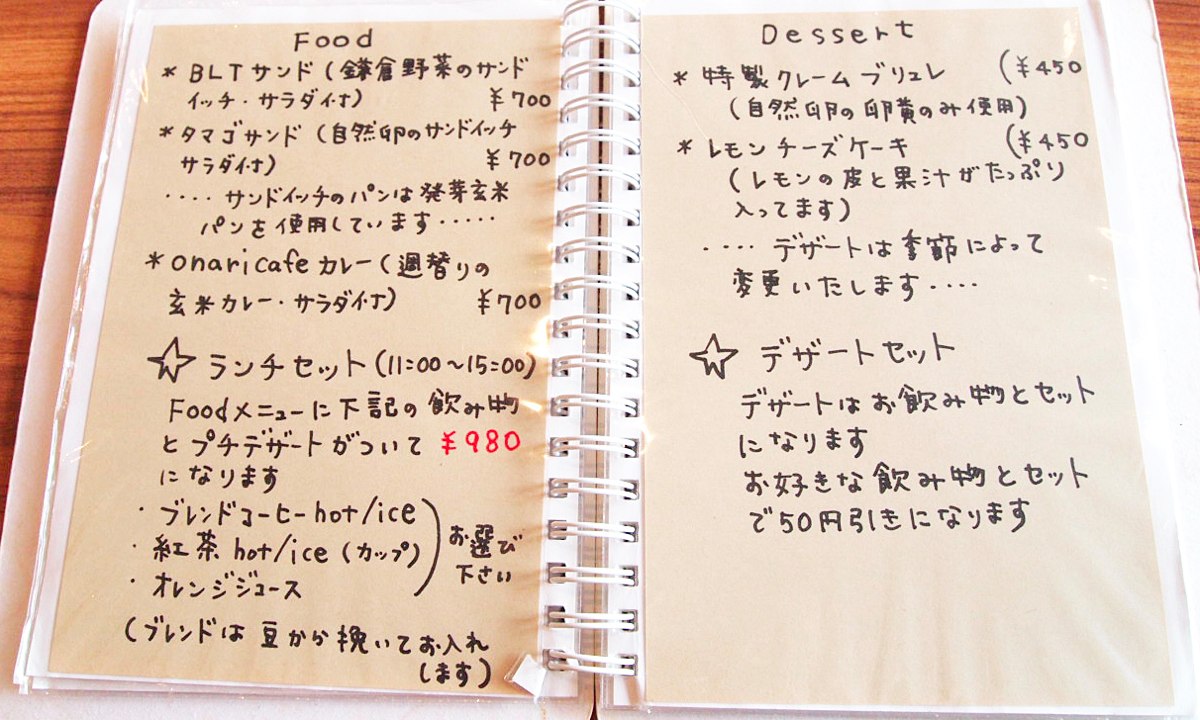 Food
* BLTサンド(鎌倉野菜のサンド
イッチ・サラダ付) ¥700
* タマゴサンド(自然卵のサンドイッチ
サラダ付) ¥700
‥‥サンドイッチのパンは発芽玄米
パンを使用しています‥‥・
* onaricafeカレー(週替りの
玄米カレー・サラダ付) ¥700
☆ ランチセット(11:00〜15:00)
Foodメニューに下記の飲み物
とプチデザートがついて ¥980
になります
・ブレンドコーヒーhot/ice
・紅茶 hot/ice (カップ)
・オレンジジュース
お選び
下さい
(ブレンドは豆から挽いてお入れ
します)
Dessert
* 特製クレームブリュレ (¥450
(自然卵の卵黄のみ使用)
* レモンチーズケーキ (¥450
(レモンの皮と果汁がたっぷり
入ってます)
‥‥デザートは季節によって
変更いたします‥‥
☆ デザートセット
デザートはお飲み物とセット
になります
お好きな飲み物とセット
で50円引きになります